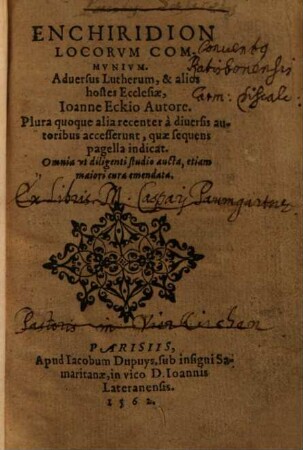 ENCHIRIDION
LOCORVM COM-
MVNIVM.
Aduersus Lutherum, & alios
hostes Ecclesiæ,
Ioanne Eckio Autore.
Conuentq
Ratisbonensis
Carm: Discalc:
Plura quoque alia recenter à diuersis au-
toribus accesserunt, quæ sequens
pagella indicat.
Omnia vt diligenti studio aucta, etiam
maiori cura emendata.
Ex Libris M. Caspary Paumgartner
Pastoris in Vien Kirchen
PARISIIS,
Apud Iacobum Dupuys, sub insigni Sa-
maritanæ, in vico D. Ioannis
Lateranensis.
1562.